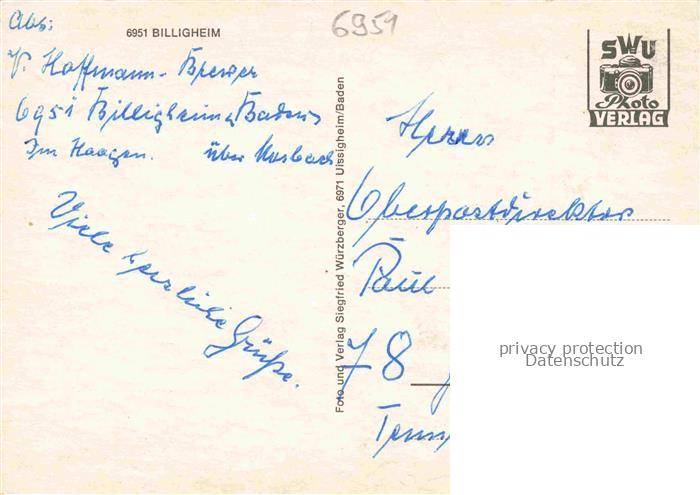 6951
6951 BILLIGHEIM
Abs:
Hoffmann-
6951 Billigheim Baden
Im Haagen. über Mosbach
Viele herzliche Grüße.
Foto und Verlag Siegfried Würzberger, 6971 Uissigheim/Baden
SWU
Photo
VERLAG
Herrn
Oberpostdirektor
Paul
78
privacy protection
Datenschutz